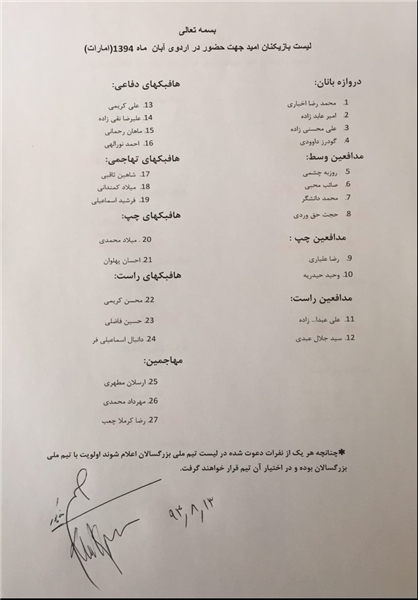 بسمه تعالی
لیست بازیکنان امید جهت حضور در اردوی آبان ماه 1394(امارات)
دروازه بانان:
1. محمد رضا اخباری
2. امیر عابد زاده
3. علی محسنی زاده
4. گودرز داوودی
مدافعین وسط:
5. روزبه چشمی
6. صائب محبی
7. محمد دانشگر
8. حجت حق وردی
مدافعین چپ :
9. رضا علیاری
10. وحید حیدریه
مدافعین راست:
11. علی عبدا... زاده
12. سید جلال عبدی
هافبکهای دفاعی:
13. علی کریمی
14. علیرضا نقی زاده
15. ماهان رحمانی
16. احمد نورالهی
هافبکهای تهاجمی:
17. شاهین ثاقبی
18. میلاد کمندانی
19. فرشید اسماعیلی
هافبکهای چپ:
20 . میلاد محمدی
21. احسان پهلوان
هافبکهای راست:
22. محسن کریمی
23. حسین فاضلی
24. دانیال اسماعیلی فر
مهاجمین:
25. ارسلان مطهری
26. مهرداد محمدی
27. رضا کرملا چعب
*چنانچه هر یک از نفرات دعوت شده در لیست تیم ملی بزرگسالان اعلام شوند اولویت با تیم ملی
بزرگسالان بوده و در اختیار آن تیم قرار خواهند گرفت.
۹۴,۸,۱۳